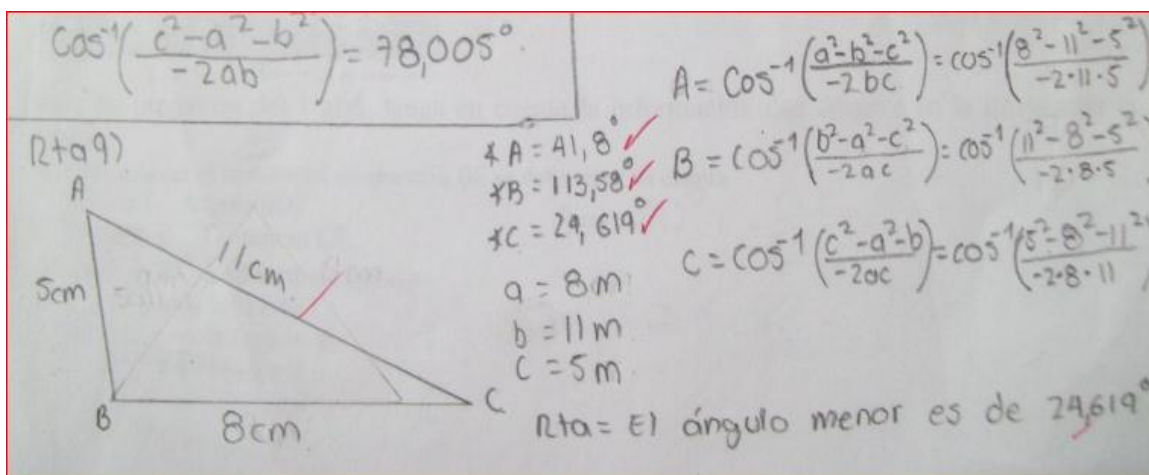 Cos⁻¹((c²-a²-b²)/(-2ab)) = 78,005°
Rta 9)
A
5cm
11cm
B
8cm
C
* A = 41,8°
* B = 113,58°
* C = 24,619°
a = 8m
b = 11m
c = 5m
A = Cos⁻¹((a²-b²-c²)/(-2bc)) = cos⁻¹((8²-11²-5²)/(-2·11·5))
B = cos⁻¹((b²-a²-c²)/(-2ac)) = cos⁻¹((11²-8²-5²)/(-2·8·5))
C = cos⁻¹((c²-a²-b)/(-2ac)) = cos⁻¹((5²-8²-11²)/(-2·8·11))
Rta = El ángulo menor es de 24,619°